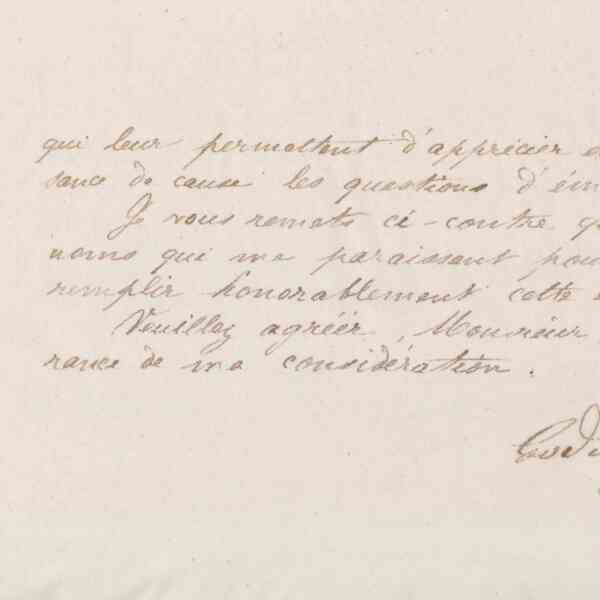 qui leur permettent d'apprécier e
sance de cause les questions d'ém
Je vous remets ci-contre q
noms qui me paraissent pou
remplir honorablement cette
Veuillez agréer, Monsieur
rance de ma considération.
Godi